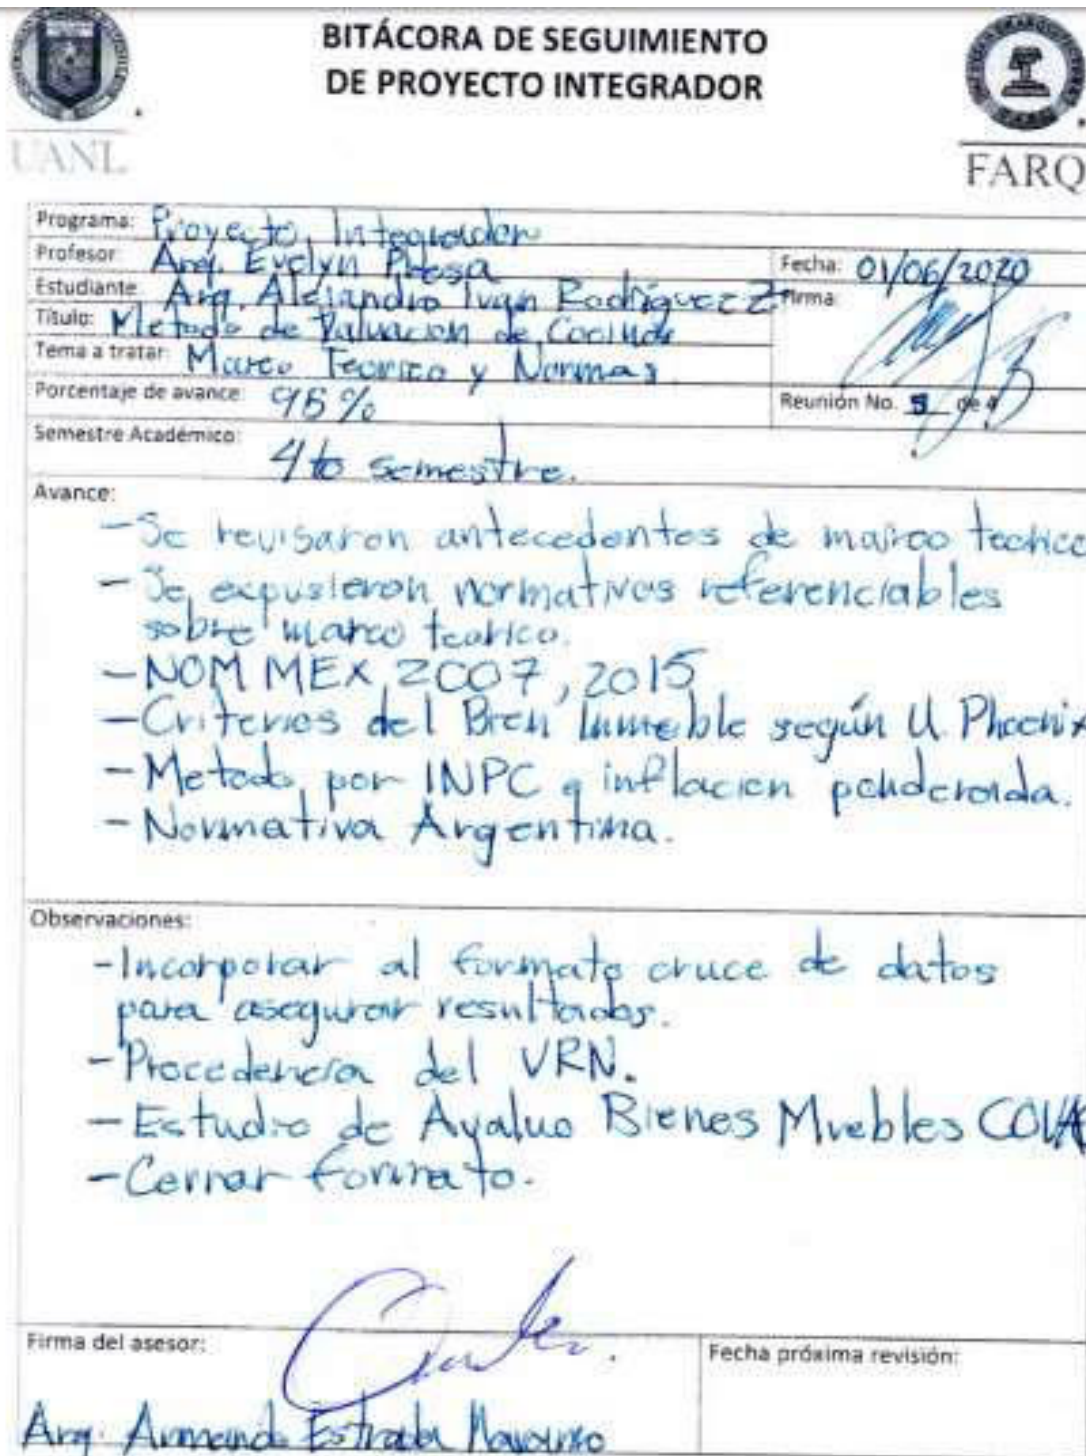 BITÁCORA DE SEGUIMIENTO
DE PROYECTO INTEGRADOR
UANL
FARQ
Programa: Proyecto Integrador
Profesor: Arq. Evelyn
Fecha: 01/06/2020
Estudiante: Arq. Alejandro Ivan Rodriguez Z
Firma:
Título: Metodo de Valuacion de Cocinas
Tema a tratar: Marco Teorico y Normas
Porcentaje de avance: 95 %
Reunión No. de 4
Semestre Académico: 4to semestre.
Avance:
- Se revisaron antecedentes de marco teorico
- Se expusieron normativas referenciables
sobre marco teorico.
- NOM MEX 2007, 2015
- Criterios del Bien Inmueble según U. Phoenix
- Metodo por INPC e inflacion ponderada.
- Normativa Argentina.
Observaciones:
- Incorporar al formato cruce de datos
para asegurar resultados.
- Procedencia del VRN.
- Estudio de Avaluo Bienes Muebles
- Cerrar formato.
Firma del asesor:
Fecha próxima revisión:
Arq. Armando Estrada